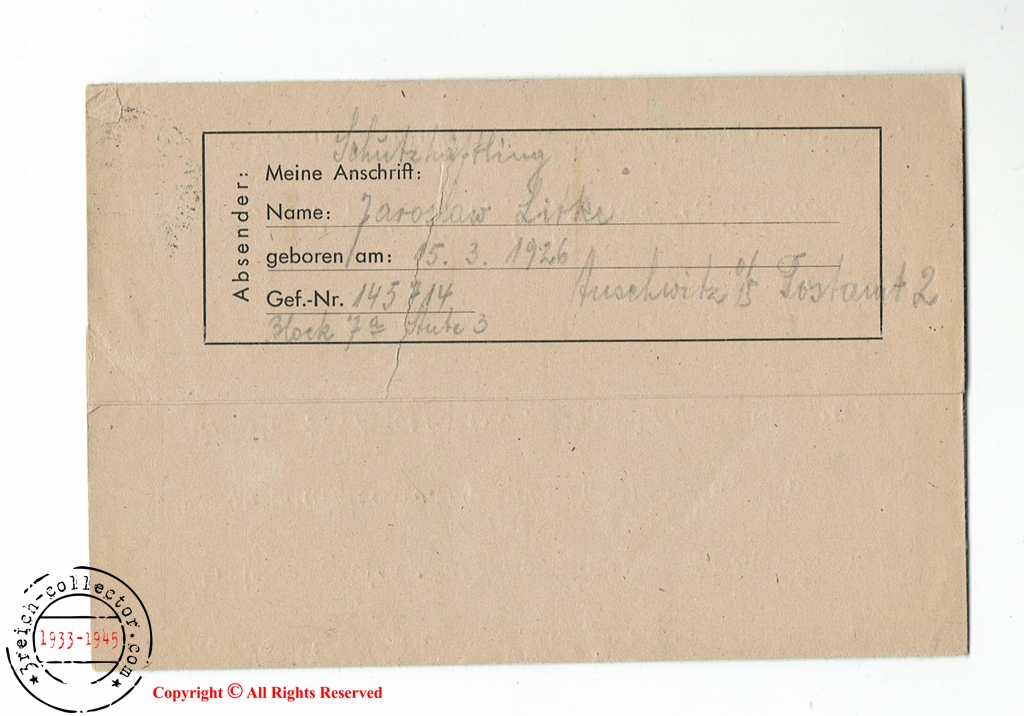 Absender:
Schutzhäftling
Meine Anschrift:
Name: Jaroslaw
geboren am: 15. 3. 1926
Gef.-Nr. 145714
Auschwitz o/s Postamt 2
Block 7a Stube 3
3reich-collector.com
1933-1945
Copyright © All Rights Reserved